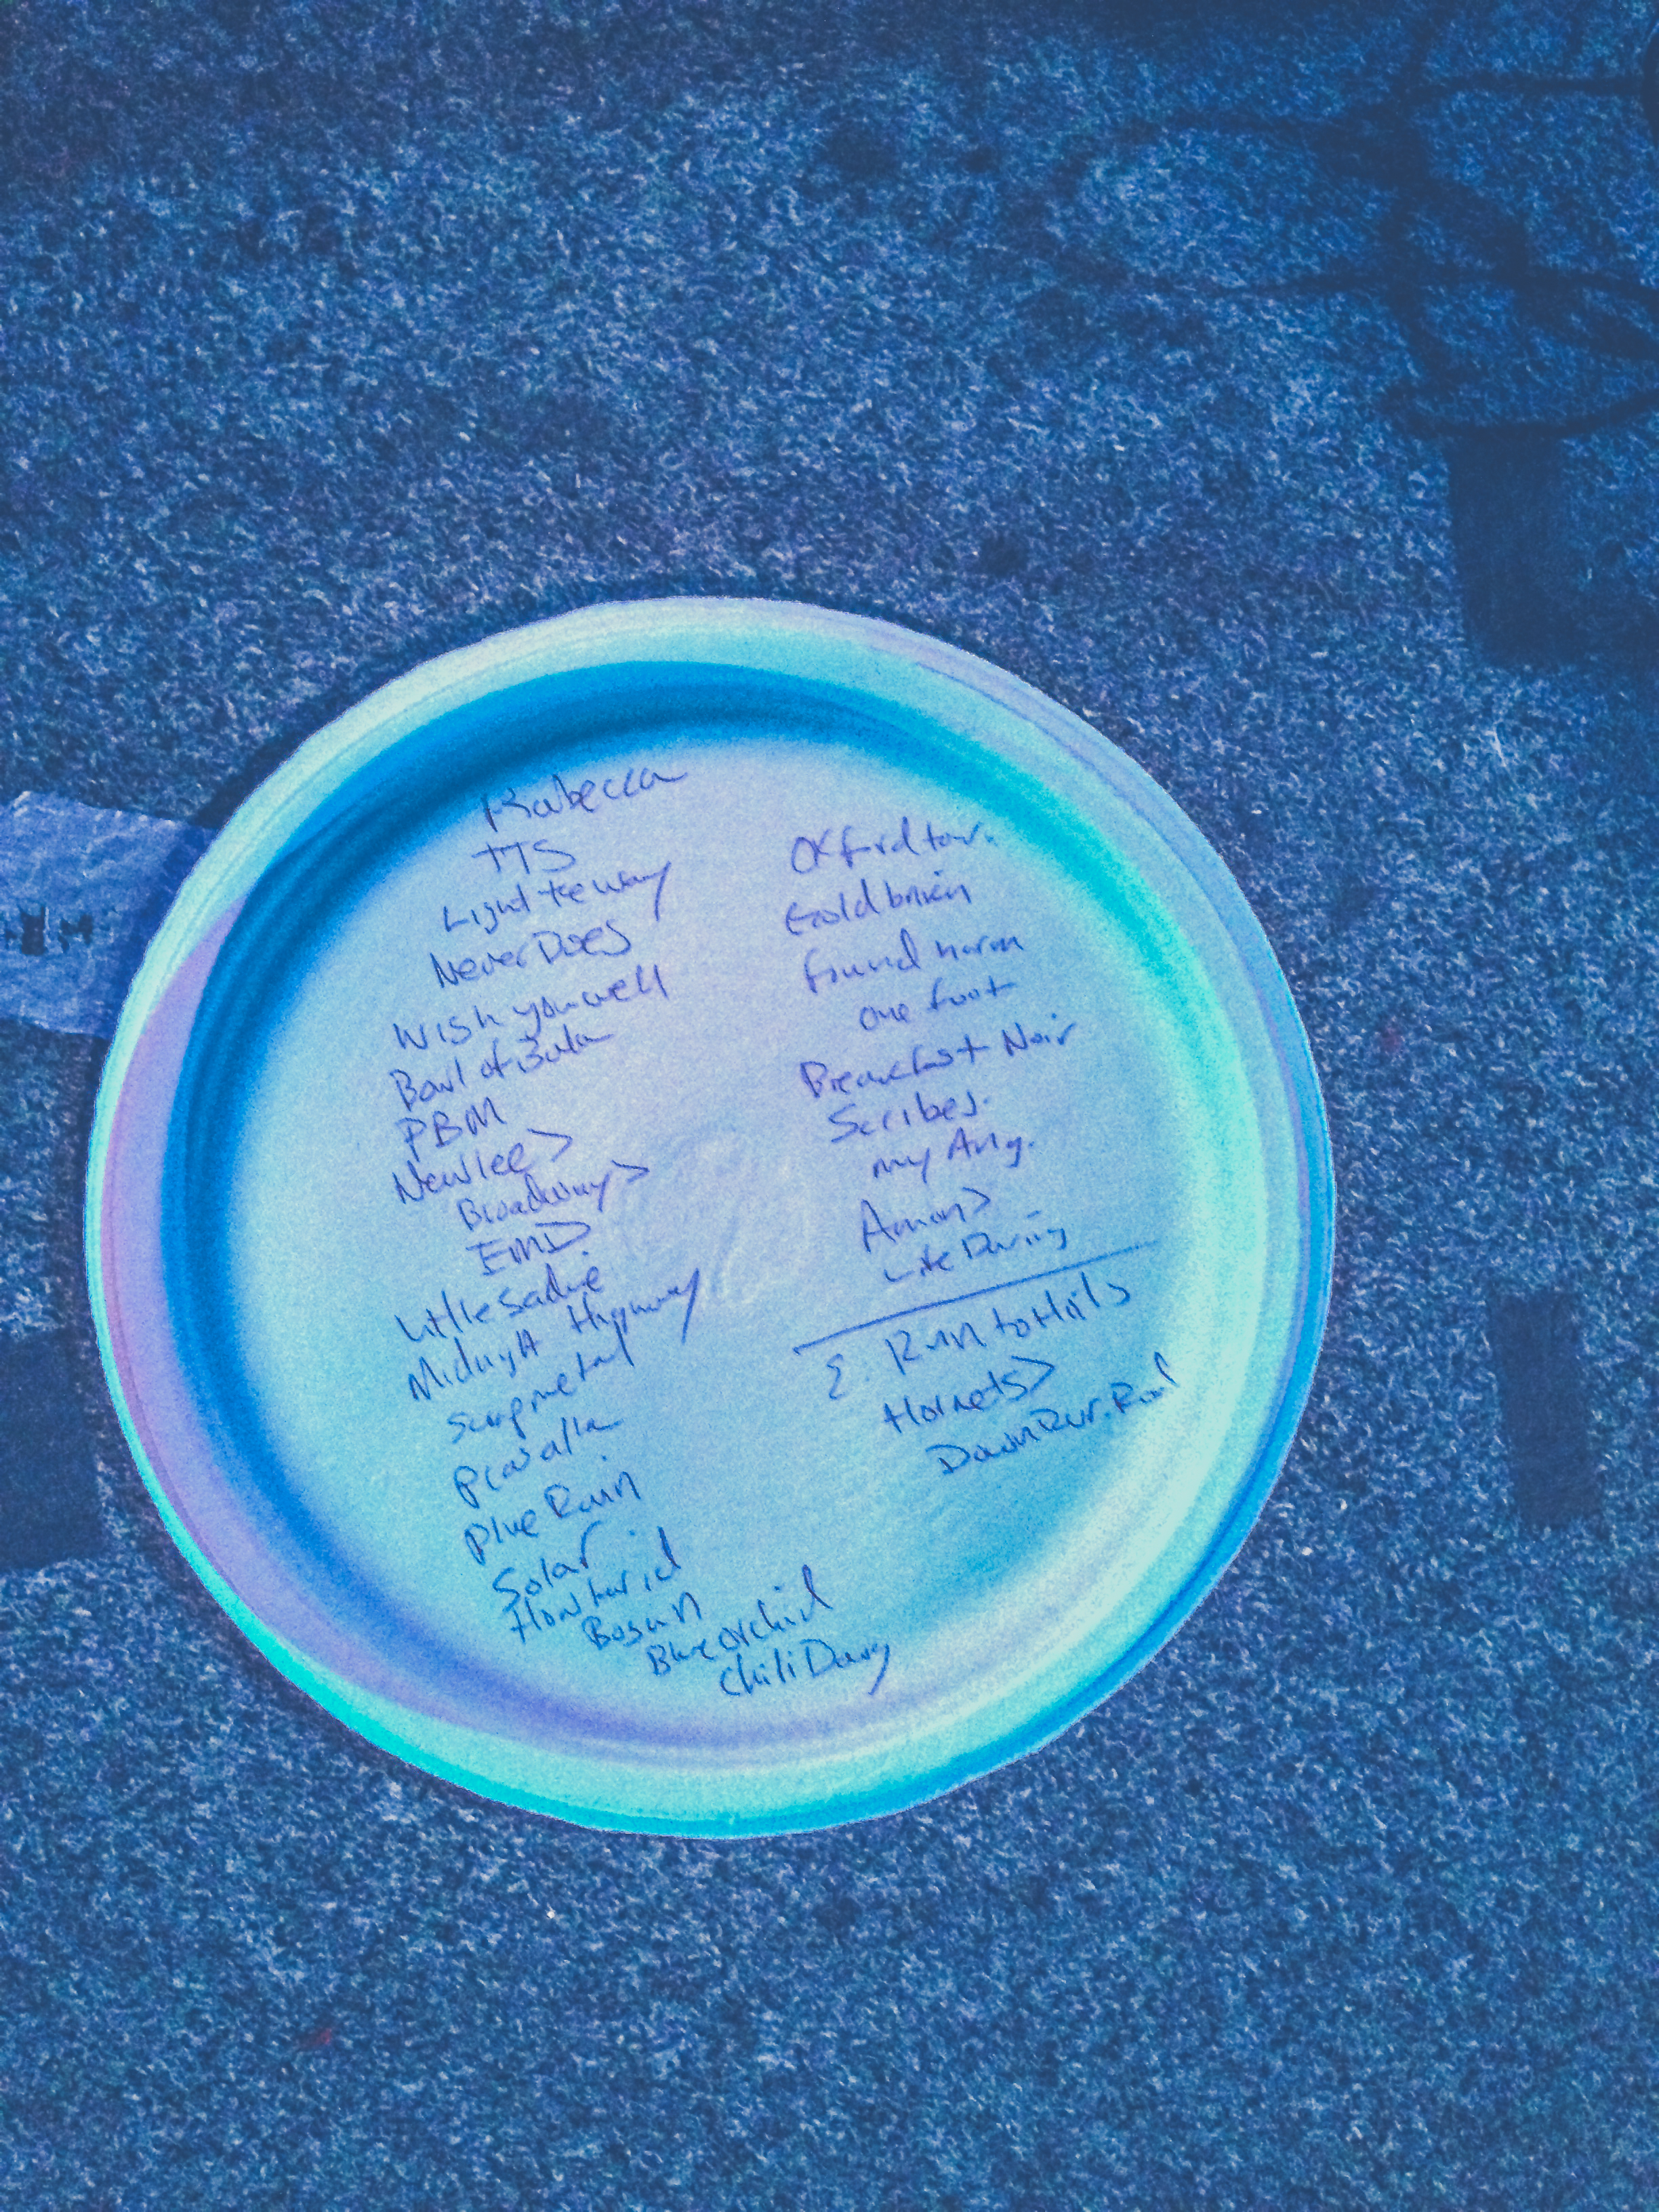 Rabecca
TTS
Light the way
Never Does
Wish you well
Bowl of Bula
PBM
New Lee >
Broadway >
EMD.
Little Sadie
Midnight Highway
Scrapmetal
Pravalla
Blue Rain
Solar
How
Bosun
Blue Orchid
Chili Davy
Oxford tow.
Gold brick
found norm
one foot
Breakfast Noir
Scribes.
my Ang.
Amon >
Like Daring
E. Run to Hills
Hornets >
Down Rur. Road